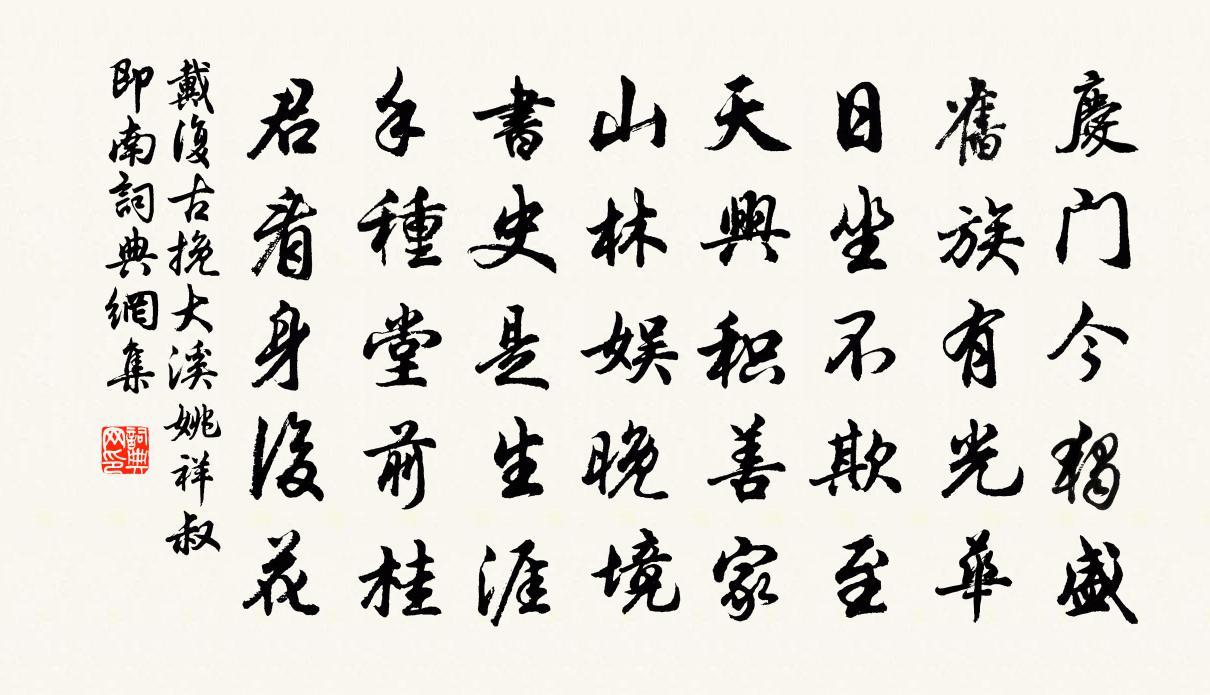 慶门今獨盛
舊族有光華
日坐不欺至
天興积善家
山林娱晚境
書史是生涯
手種堂前桂
君看身後花
戴復古挽大溪姚祥叔
即南詞典網集
詞典网印